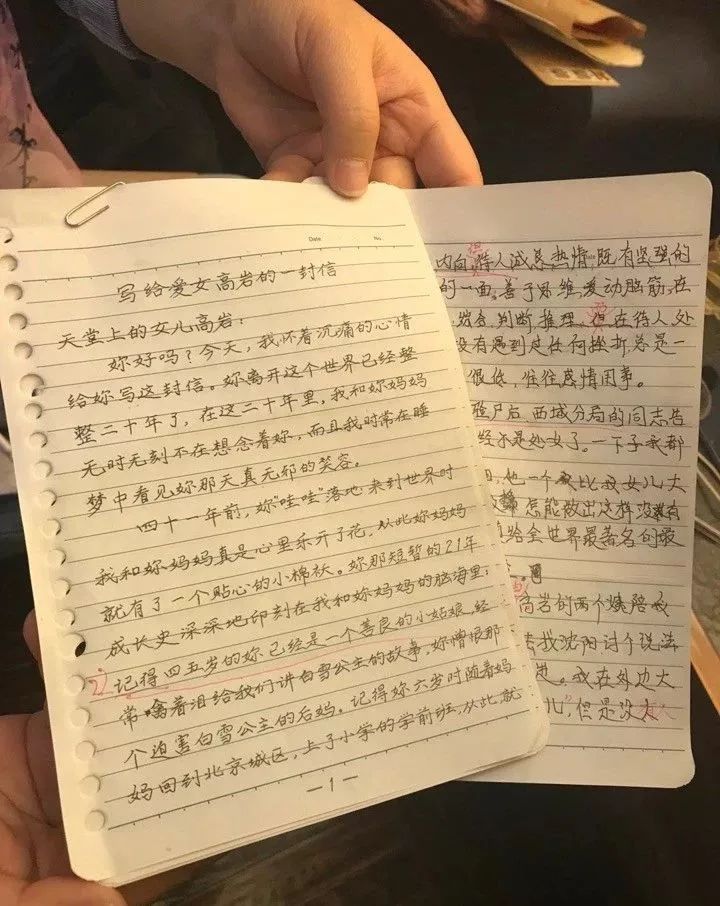 Date
No.
写给爱女高岩的一封信
天堂上的女儿高岩:
妳好吗?今天,我怀着沉痛的心情
给妳写这封信。妳离开这个世界已经整
整二十年了,在这二十年里,我和妳妈妈
无时无刻不在想念着妳,而且我时常在睡
梦中看见妳那天真无邪的笑容。
四十一年前,妳“哇哇”落地来到世界时
我和妳妈妈真是心里乐开了花,从此妳妈妈
就有了一个贴心的小棉袄。妳那短暂的21年
成长史深深地印刻在我和妳妈妈的脑海里;
记得四五岁的妳已经是一个善良的小姑娘,经
常噙着泪给我们讲白雪公主的故事,妳憎恨那
个迫害白雪公主的后妈。记得妳六岁时随着妈
妈回到北京城区,上了小学的学前班,从此,就
—1—
内向,待人诚恳热情,既有坚强的
的一面。善于思维,爱动脑筋,在
判断推理,但在待人处
没有遇到过任何挫折,总是一
很低,往往感情用事。
验尸后西城分局的同志告
经不是处女了。一下子我都
他一个比我女儿大
怎能做出这样没有
给全世界最著名的最
高岩的两个姨陪我
去找沈阳讨个说法
进。我在外边大
儿”,但是没